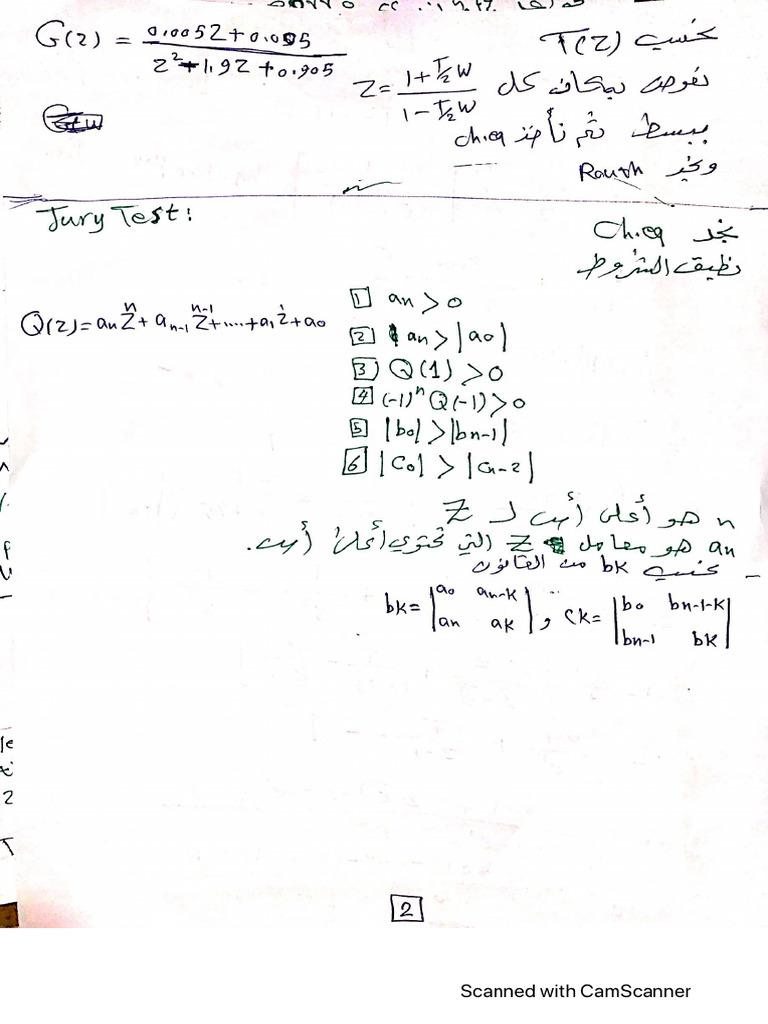 G(z) = 0.005z+0.005 / z²+1.9z+0.905
نحسب T(z)
نعوض بمكان كل z = 1+T/2 w / 1-T/2 w
يبسط ثم نأخذ ch.eq
Routh
Jury Test:
نجد Ch.eq
نطبق الشروط
Q(z)=an zⁿ + an-1 zⁿ⁻¹+....+a1 z¹+a0
1 an > 0
2 an > |a0|
3 Q(1) > 0
4 (-1)ⁿ Q(-1) > 0
5 |b0| > |bn-1|
6 |c0| > |cn-2|
n هو أعلى أس لـ Z
an هو معامل Z التي تحتوي أعلى أس.
- نحسب bk من القانون
bk = |a0 an-k| , ck = |b0 bn-1-k|
|an ak| |bn-1 bk|
2
Scanned with CamScanner